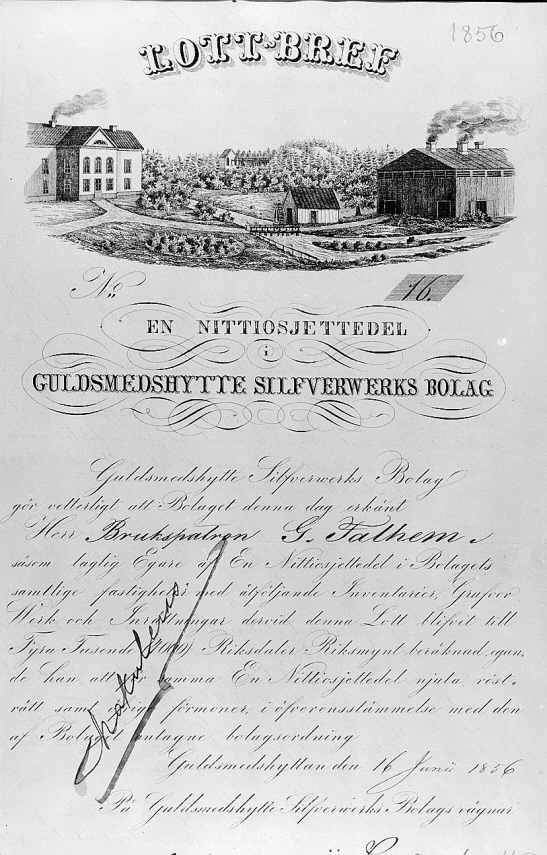 1856
LOTT-BREF
No. 16.
EN NITTIOSJETTEDEL
i
GULDSMEDSHYTTE SILFVERWERKS BOLAG
Guldsmedshytte Silfverwerks Bolag
gör vetterligt att Bolaget denna dag erkänt
Herr Brukspatron G. Talhem.
såsom laglig Egare af En Nittiosjettedel i Bolagets
samtlige fastigheter med åtföljande Inventarier, Grufvor
Werk och Inrättningar dervid denna Lott blifvit till
Fyra Tusende (4000) Riksdaler Riksmynt beräknad, egan,
de han att för samma En Nittiosjettedel njuta röst,
rätt samt öfrige förmoner, i öfverensstämmelse med den
af Bolaget antagne bolagsordning
Guldsmedshyttan den 16 Junii 1856
På Guldsmedshytte Silfverwerks Bolags vägnar
Makuleras